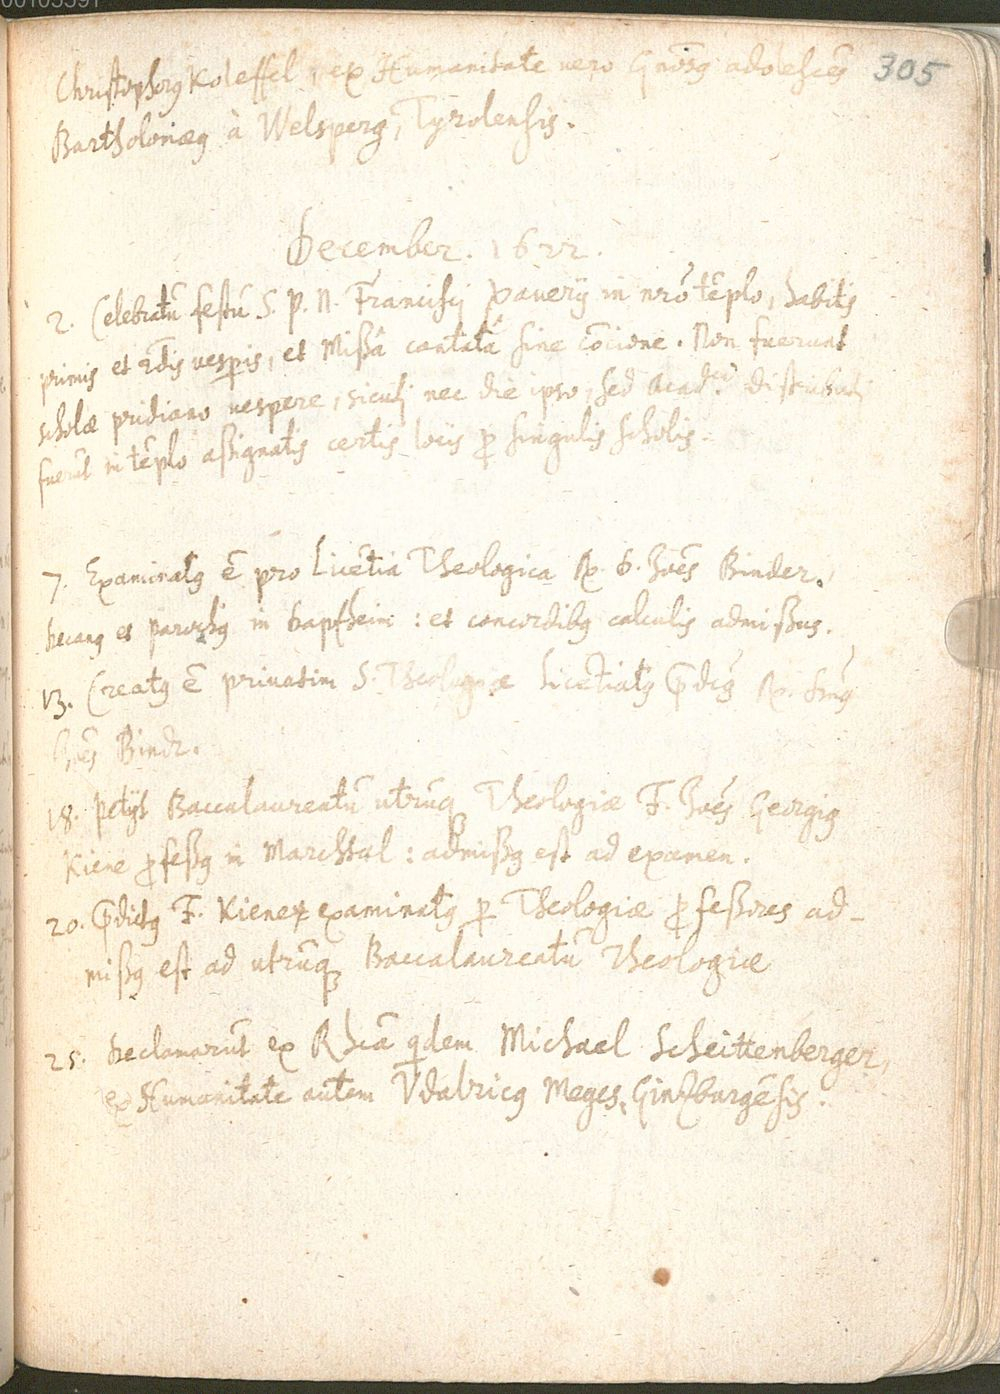 305
Christophorꝰ Koleffel, ex Humanitate uero Gnōsꝰ adolescēs
Bartholomæꝰ à Welsperg, Tyrolensis.
December. 1622.
2. Celebratū festū S. P. N. Francisci Xauerij in nrō tēplo, habitis
primis et 2dis uesp̱is, et Missâ cantatâ sine cōcione. Non fuerunt
scholæ pridiano uespere, sicuti nec die ipso, sed Acad.ci distributi
fuerūt in tēplo assignatis certis locis ꝓ singulis scholis.
7. Examinatꝰ ē pro Licētia Theologica R. D. Joēs Binder,
Decanꝰ et parochꝰ in : et concordibꝰ calculis admissus.
13. Creatꝰ ē priuatim S. Theologiæ Licētiatꝰ p̄dcs̄ R. Dn̄s
Joēs Bindr.
18. petijt Baccalaureatū utrūq̨ Theologiæ F. Joēs Georgiꝰ
Kiene ꝓfessꝰ in Marchtal : admissꝰ est ad examen.
20. p̄dictꝰ F. Kiene examinatꝰ p̱ Theologiæ ꝓfessores ad-
missꝰ est ad utrūq̨ Baccalaureatū Theologiæ
25. Declamarūt ex Rhcā qdem Michael Scheittenberger,
ex Humanitate autem Vdalricꝰ Meges, Gintzburgēsis.